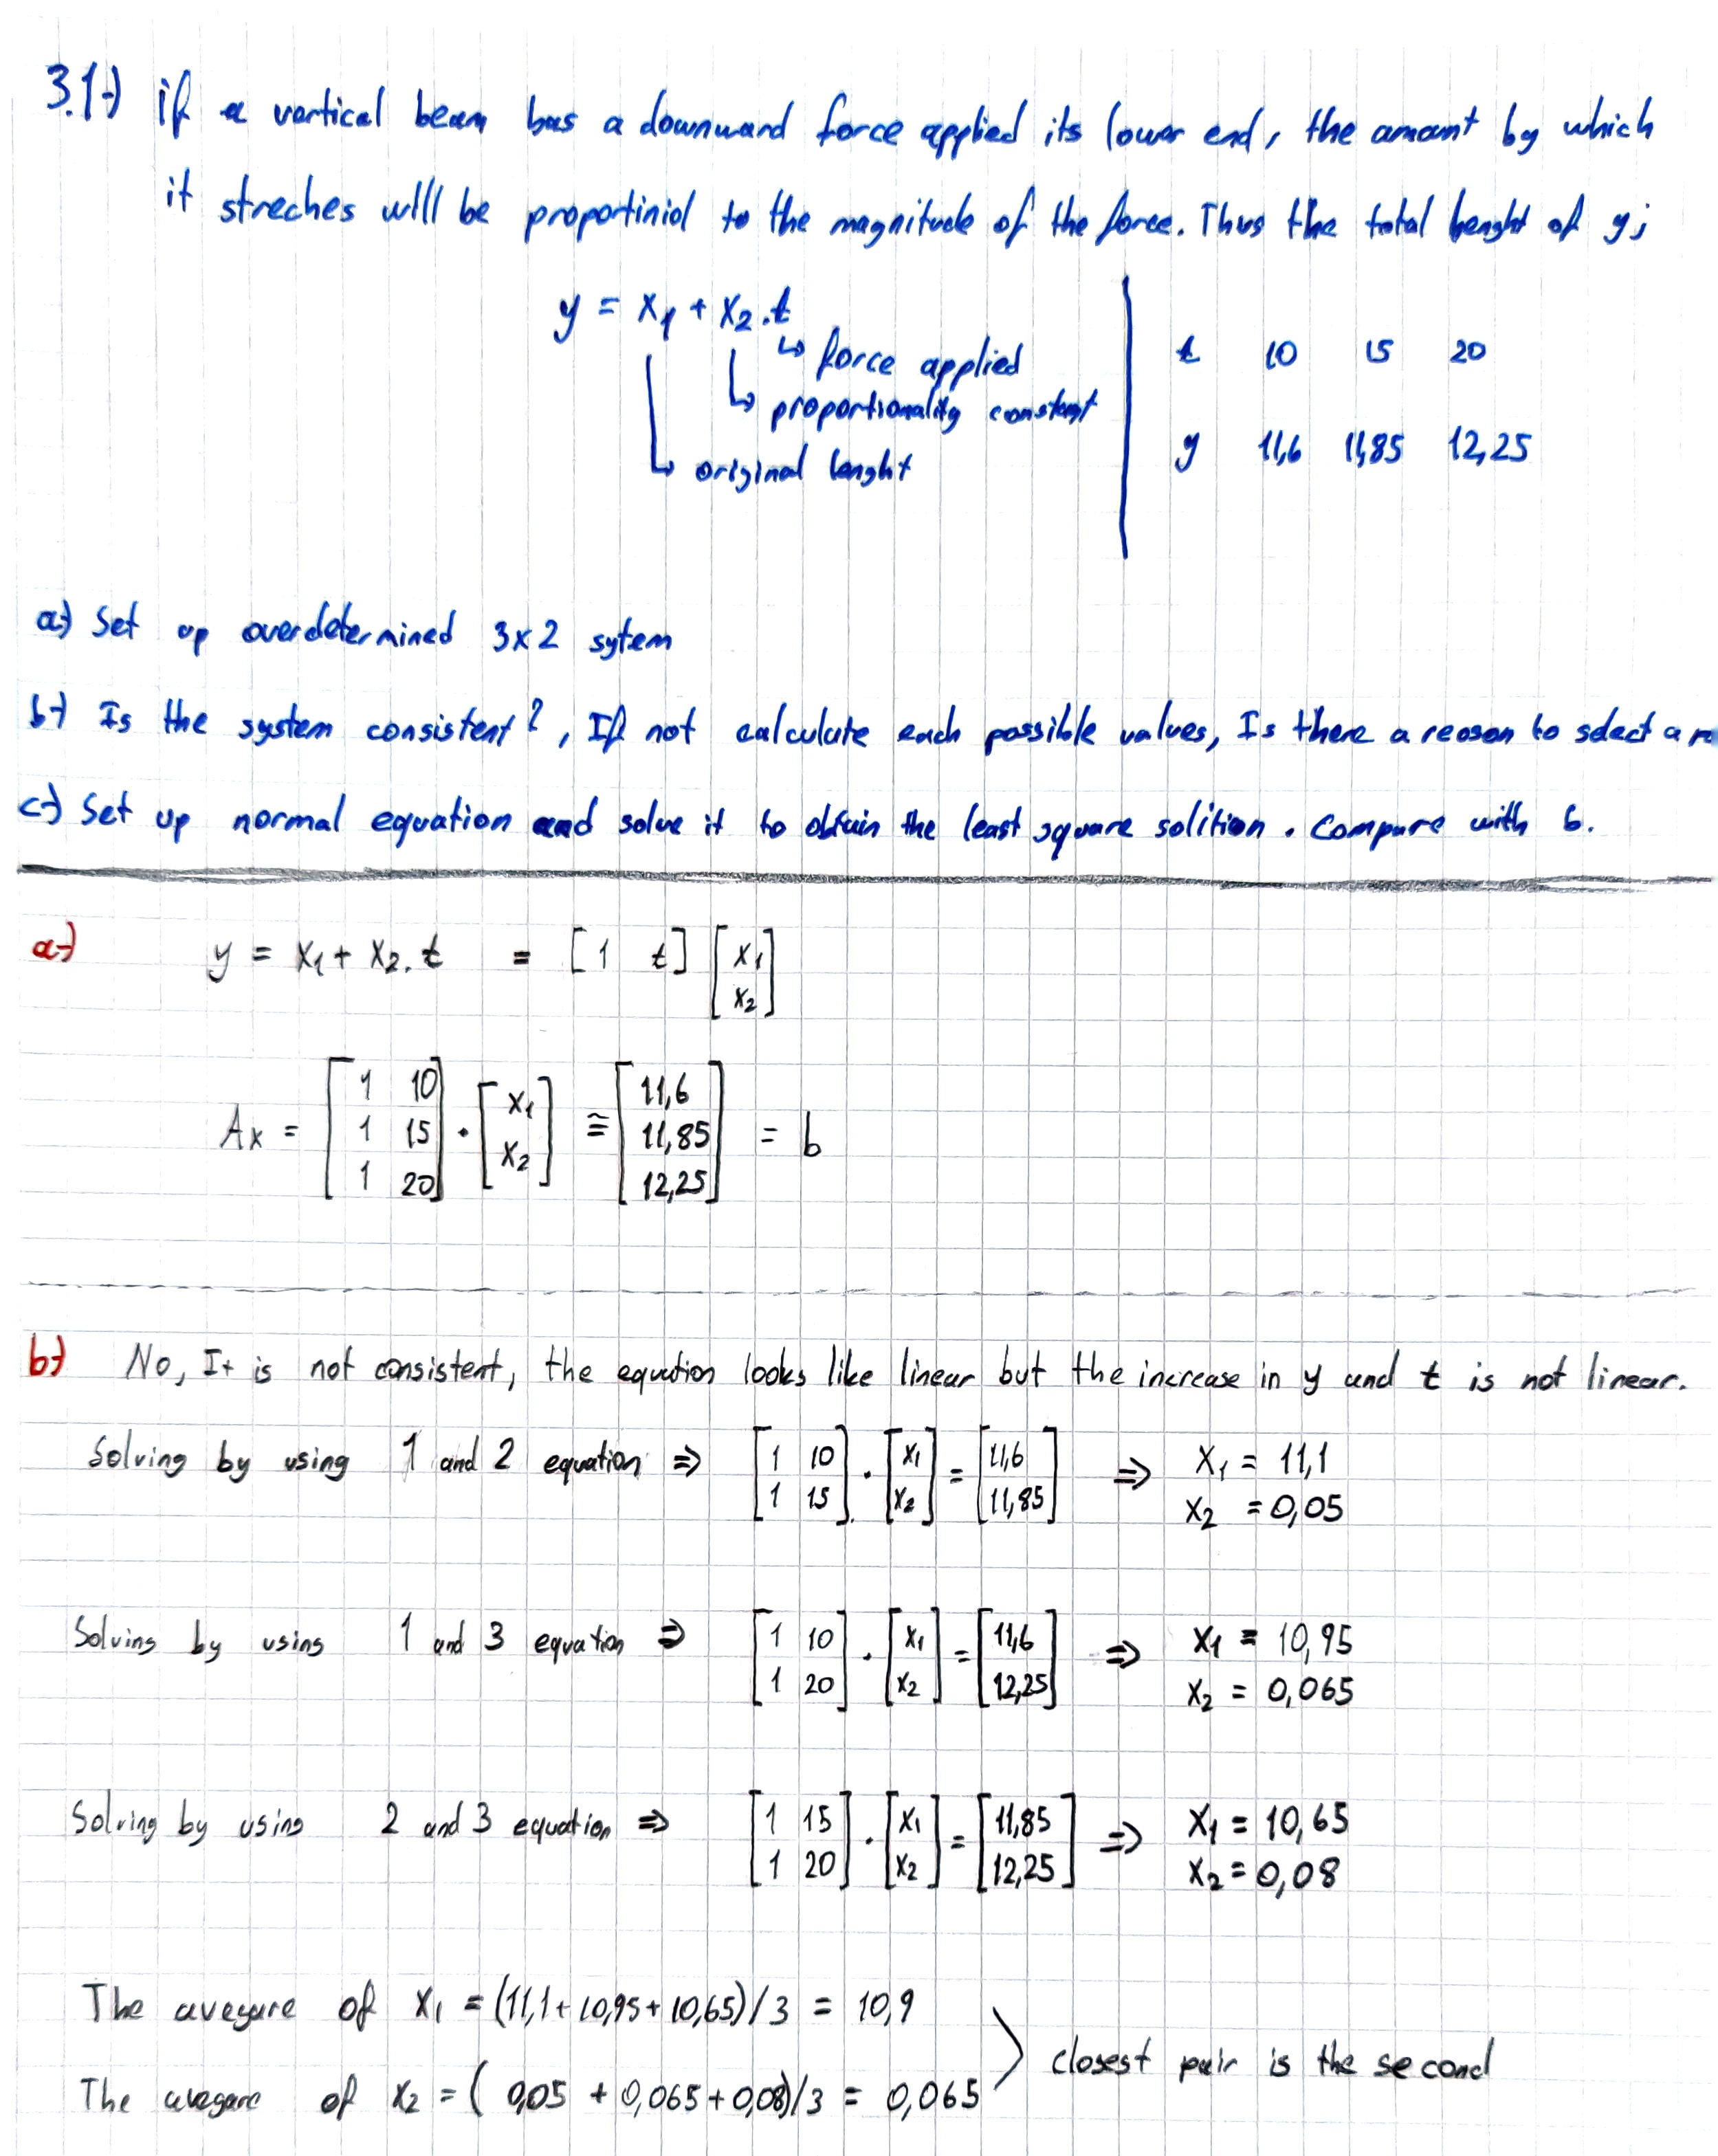 3.1-) if a vertical beam has a downward force applied its lower end, the amount by which
it streches will be proportiniol to the magnitude of the force. Thus the total lenght of y;
y = x₁ + x₂.t
↳ force applied
↳ proportionality constant
↳ original lenght
t 10 15 20
y 11,6 11,85 12,25
a-) Set up overdetermined 3x2 sytem
b-) Is the system consistent?, If not calculate each possible values, Is there a reason to select a
c-) Set up normal equation and solve it to obtain the least square solition. Compare with b.
a-) y = x₁ + x₂.t = [1 t] [x₁
x₂]
Ax = [1 10
1 15
1 20] . [x₁
x₂] ≅ [11,6
11,85
12,25] = b
b-) No, It is not consistent, the equation looks like linear but the increase in y and t is not linear.
Solving by using 1 and 2 equation ⇒ [1 10
1 15] . [x₁
x₂] = [11,6
11,85] ⇒ x₁ = 11,1
x₂ = 0,05
Solving by using 1 and 3 equation ⇒ [1 10
1 20] . [x₁
x₂] = [11,6
12,25] ⇒ x₁ = 10,95
x₂ = 0,065
Solving by using 2 and 3 equation ⇒ [1 15
1 20] . [x₁
x₂] = [11,85
12,25] ⇒ x₁ = 10,65
x₂ = 0,08
The avegare of x₁ = (11,1 + 10,95 + 10,65)/3 = 10,9
The avegare of x₂ = (0,05 + 0,065 + 0,08)/3 = 0,065
closest pair is the second